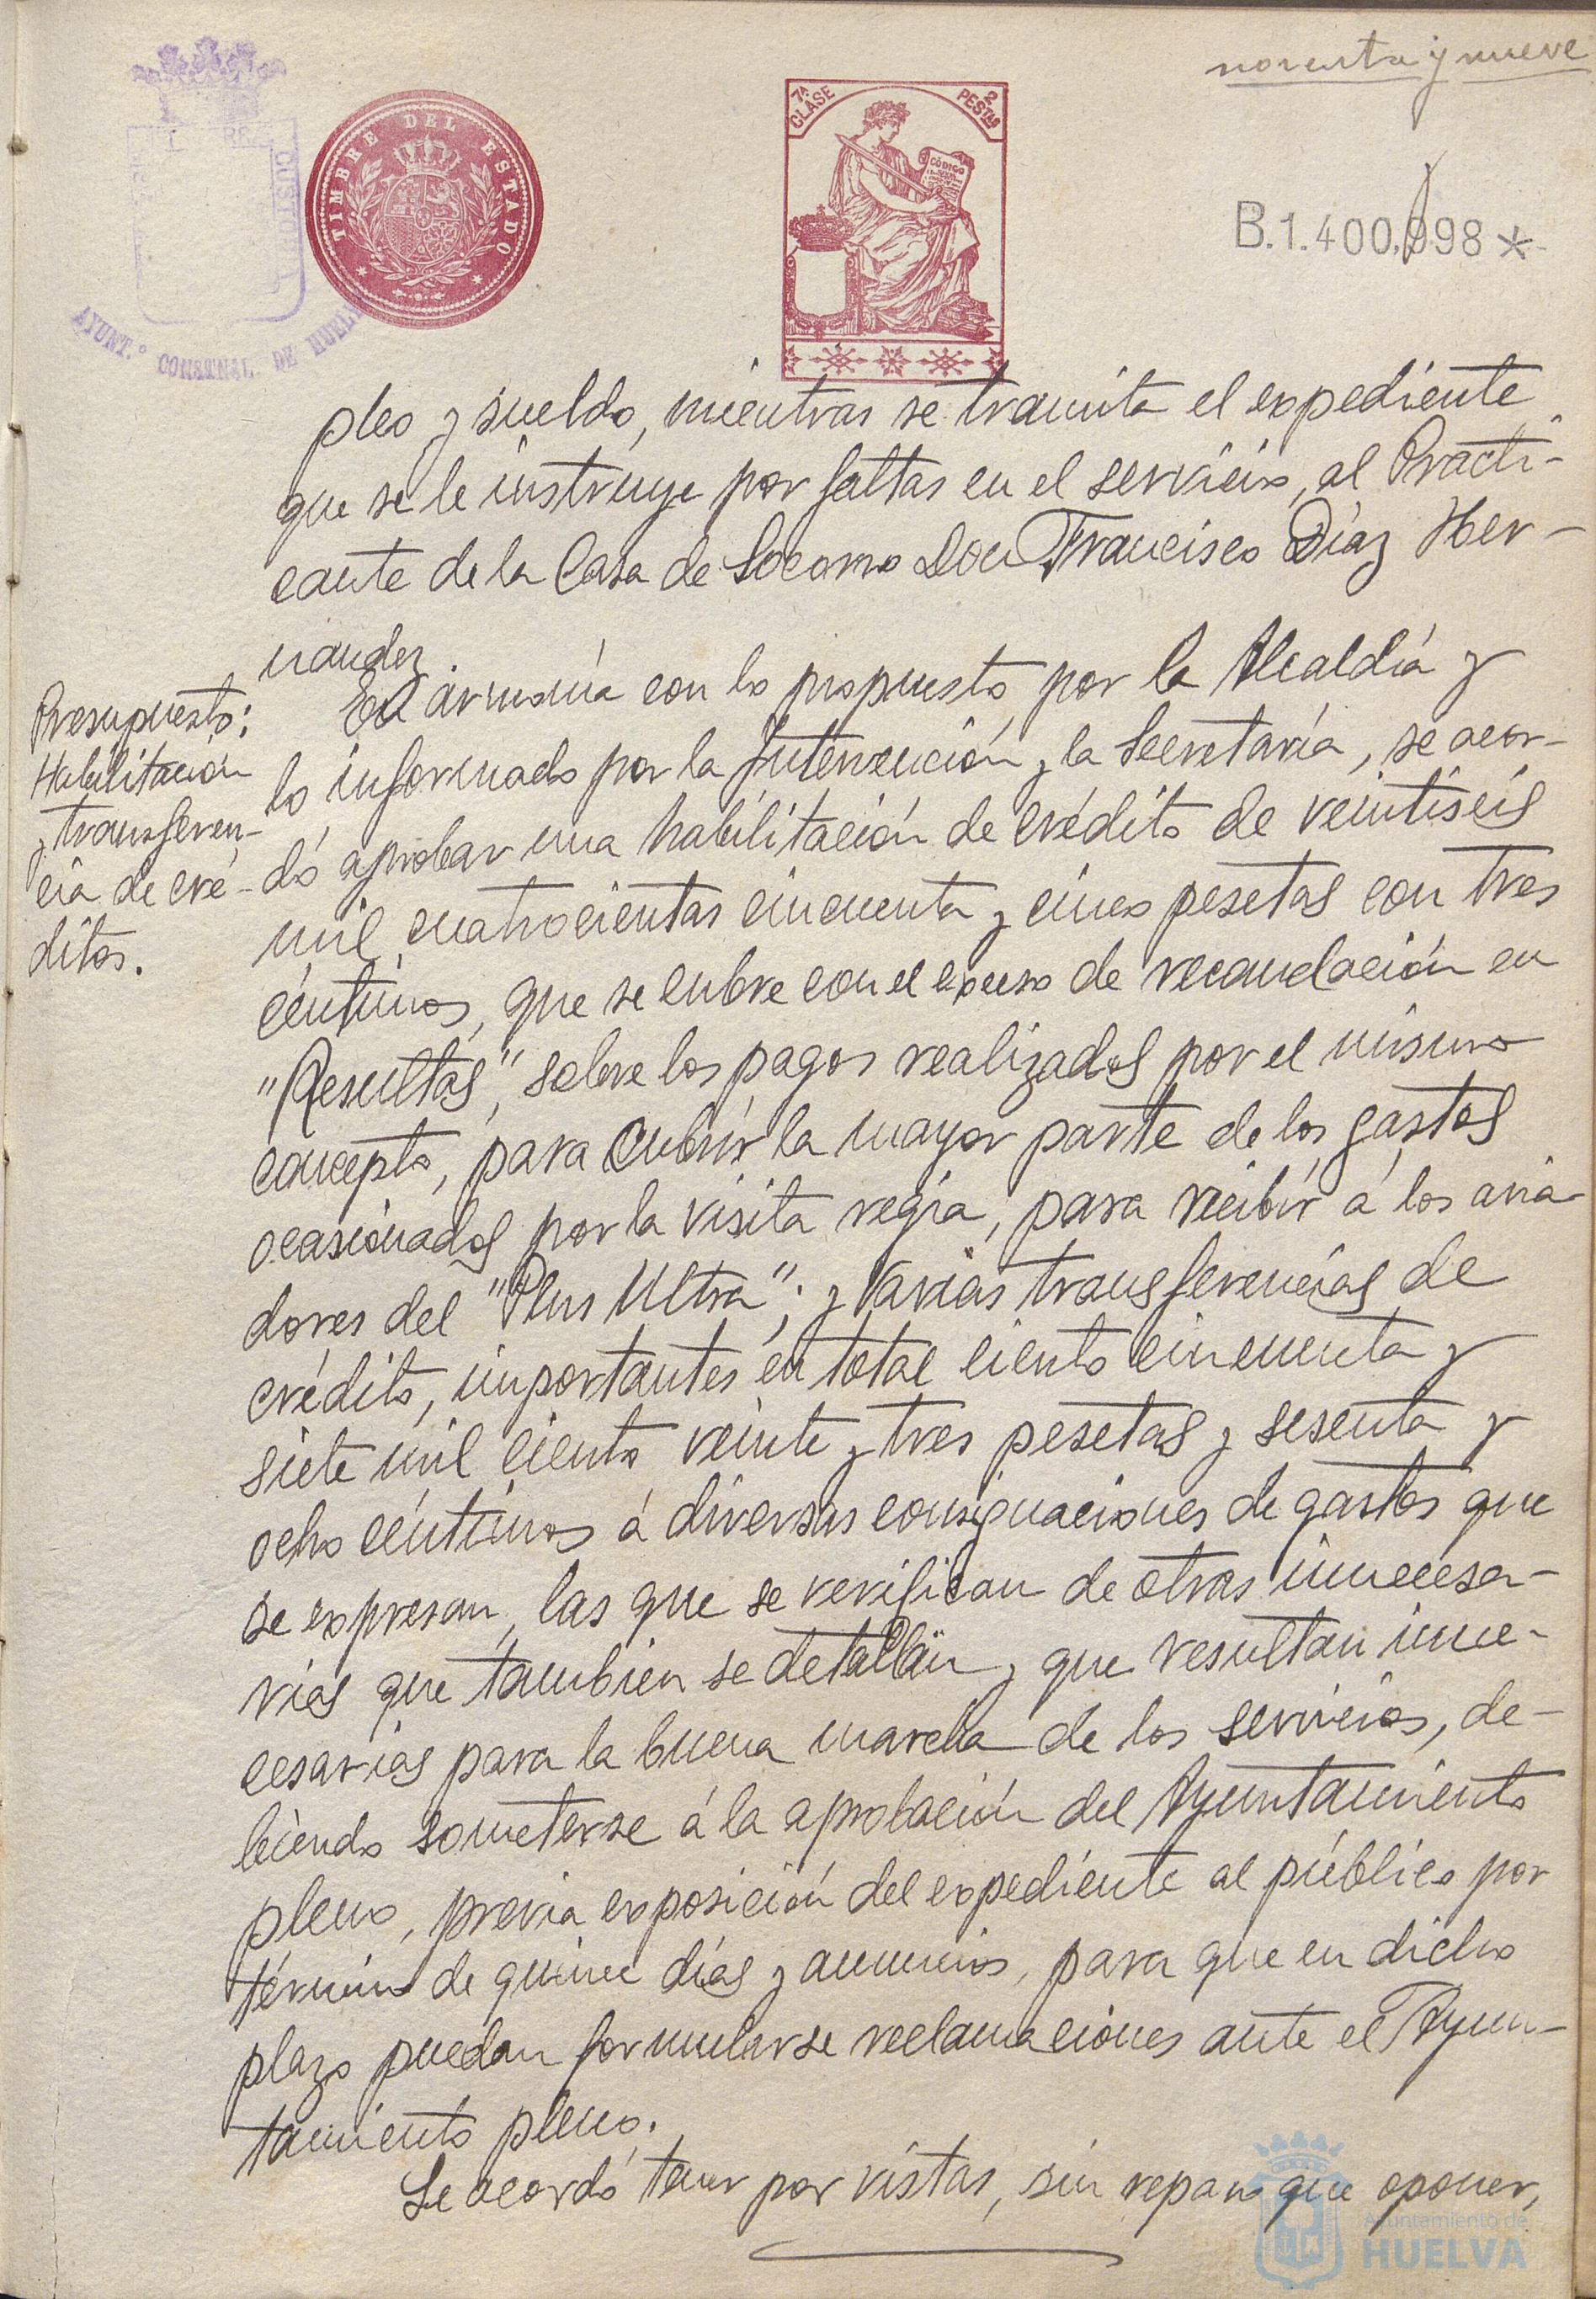 noventa y nueve
TIMBRE DEL ESTADO
7ª CLASE
2 PESTAS
CÓDIGO
B.1.400.998*
AYUNT.º CONSTNAL DE HUELVA
pleo y sueldo, mientras se tramita el expediente
que se le instruye por faltas en el servicio, al Practi-
cante de la Casa de Socorro Don Francisco Díaz Her-
nandez.
Presupuesto:
Habilitación
y transferen-
cia de cré-
ditos.
En armonía con lo propuesto por la Alcaldía y
lo informado por la Intervención y la Secretaría, se acor-
dó aprobar una habilitación de crédito de veintiseis
mil cuatrocientas cincuenta y cinco pesetas con tres
céntimos, que se cubre con el exceso de recaudación en
"Resultas", sobre los pagos realizados por el mismo
concepto, para cubrir la mayor parte de los gastos
ocasionados por la visita regia, para recibir á los avia-
dores del "Plus Ultra"; y varias transferencias de
crédito, importantes en total ciento cincuenta y
siete mil ciento veinte y tres pesetas y sesenta y
ocho céntimos á diversas consignaciones de gastos que
se expresan, las que se verifican de otras innecesa-
rias que tambien se detallan y que resultan inne-
cesarias para la buena marcha de los servicios, de-
biendo someterse á la aprobación del Ayuntamiento
pleno, previa exposición del expediente al público por
término de quince días y anuncios, para que en dicho
plazo puedan formularse reclamaciones ante el Ayun-
tamiento pleno.
Se acordó tener por vistas, sin reparo que oponer,
Ayuntamiento de
HUELVA